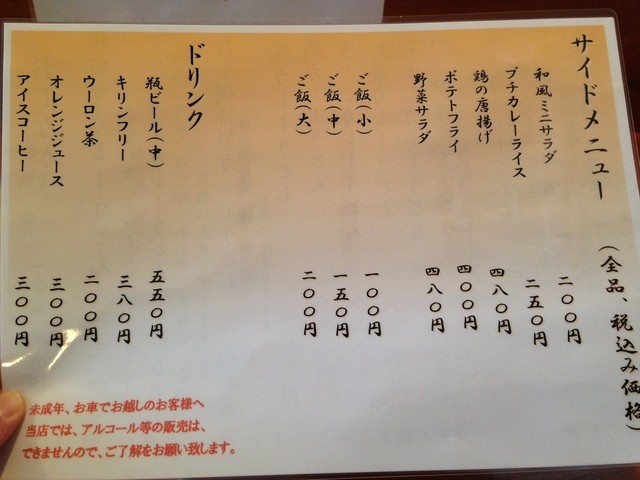 サイドメニュー (全品、税込み価格)
和風ミニサラダ 二〇〇円
プチカレーライス 二五〇円
鶏の唐揚げ 四八〇円
ポテトフライ 四〇〇円
野菜サラダ 四八〇円
ご飯(小) 一〇〇円
ご飯(中) 一五〇円
ご飯(大) 二〇〇円
ドリンク
瓶ビール(中) 五五〇円
キリンフリー 三八〇円
ウーロン茶 二〇〇円
オレンジジュース 三〇〇円
アイスコーヒー 三〇〇円
未成年、お車でお越しのお客様へ
当店では、アルコール等の販売は、
できませんので、ご了解をお願い致します。